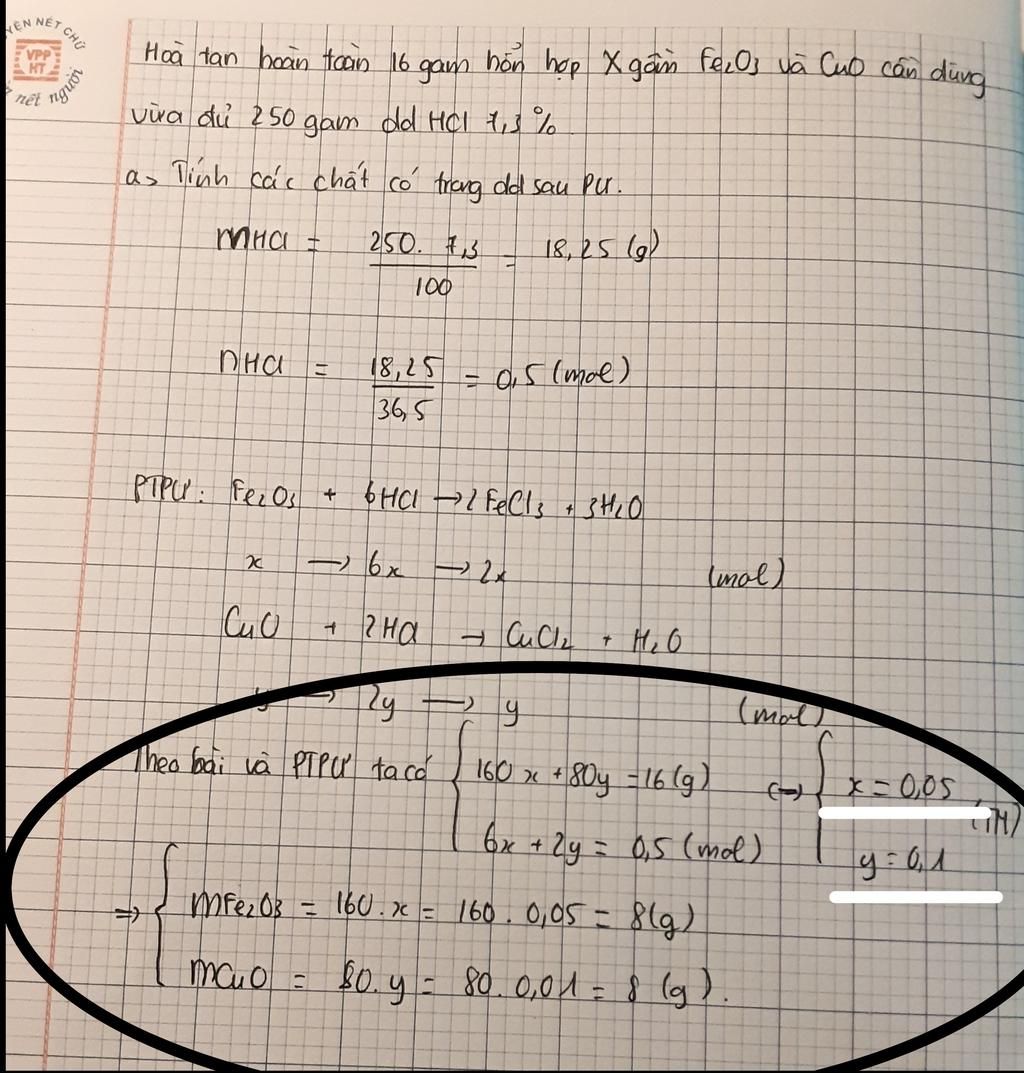 YÊN NÉT CHỮ
VPP
HT
nết người
Hoà tan hoàn toàn 16 gam hỗn hợp X gồm Fe2O3 và CuO cần dùng
vừa đủ 250 gam dd HCl 7,3 %
a, Tính các chất có trong dd sau PƯ.
mHCl = 250. 7,3 / 100 = 18,25 (g)
nHCl = 18,25 / 36,5 = 0,5 (mol)
PTPƯ: Fe2O3 + 6HCl → 2FeCl3 + 3H2O
x → 6x → 2x (mol)
CuO + 2HCl → CuCl2 + H2O
y → 2y → y (mol)
Theo bài và PTPƯ ta có { 160x + 80y = 16 (g) ↔ { x = 0,05
(TM)
6x + 2y = 0,5 (mol) y = 0,1
⇒ { mFe2O3 = 160.x = 160. 0,05 = 8(g)
mCuO = 80.y = 80. 0,01 = 8 (g).